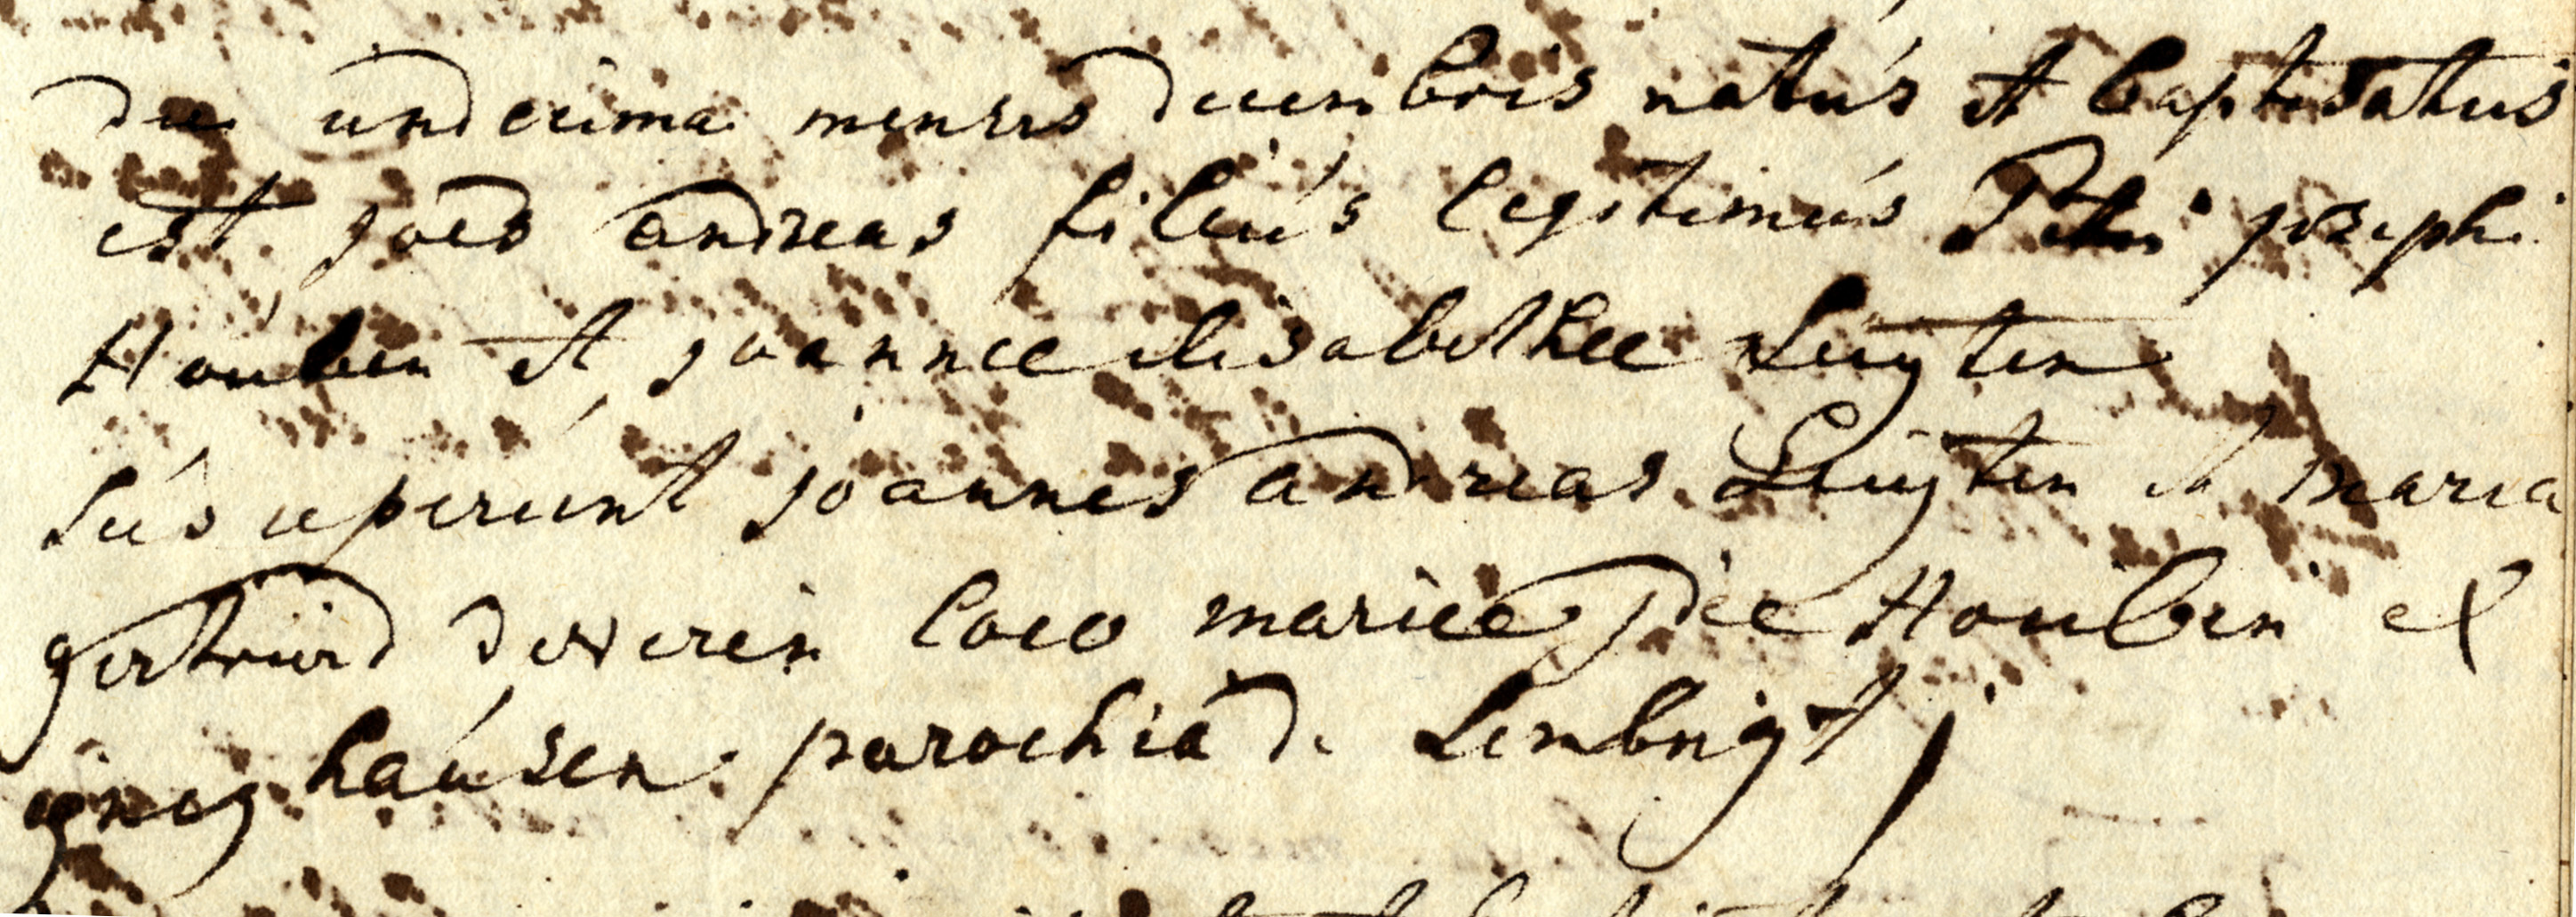 die undecima mensis decembris natus et baptisatus
est joes andreas filius legitimus Petri josephi
Houben et joannee elisabethee Luyten
susceperunt joannes andreas Luyten et maria
gertruid loco mariee Houben ex
hausen parochia de Lembrigt j